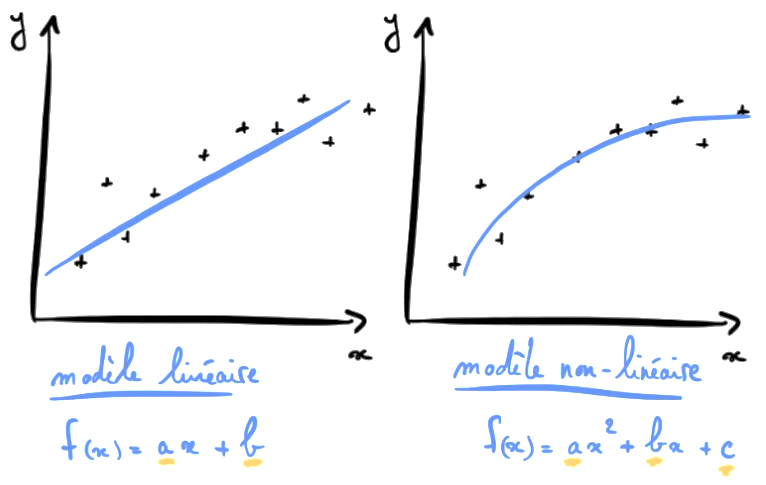 y
x
modèle linéaire
f(x) = ax + b
y
x
modèle non-linéaire
f(x) = ax² + bx + c